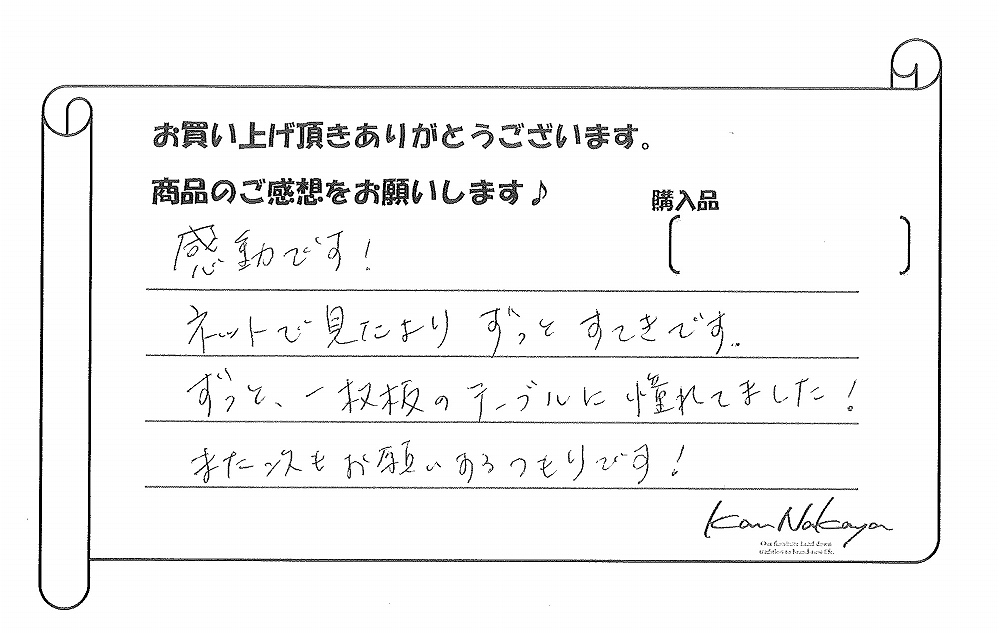 お買い上げ頂きありがとうございます。
商品のご感想をお願いします♪
購入品
感動です！
ネットで見たより ずっと すてきです。
ずっと、一枚板の テーブルに 憧れてました！
また次も お願いするつもりです！
Kan Nakaya
Our furniture hand down
tradition to brand-new life.